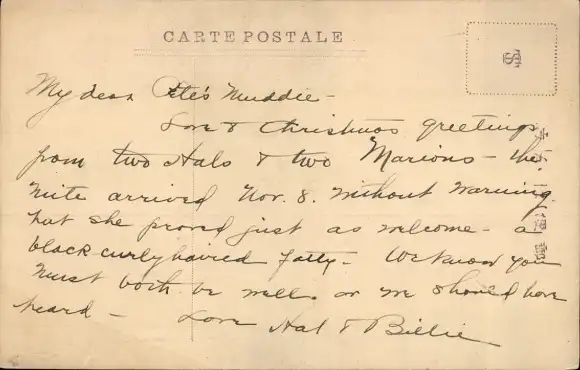 CARTE POSTALE
My dear Pete's Muddie -
Love & Christmas greetings
from two Hals & two Marions - the
mite arrived Nov. 8. without warning
but she proved just as welcome - a
black curly haired fatty - We know you
must both be well or we should have
heard - Love Hal & Billie